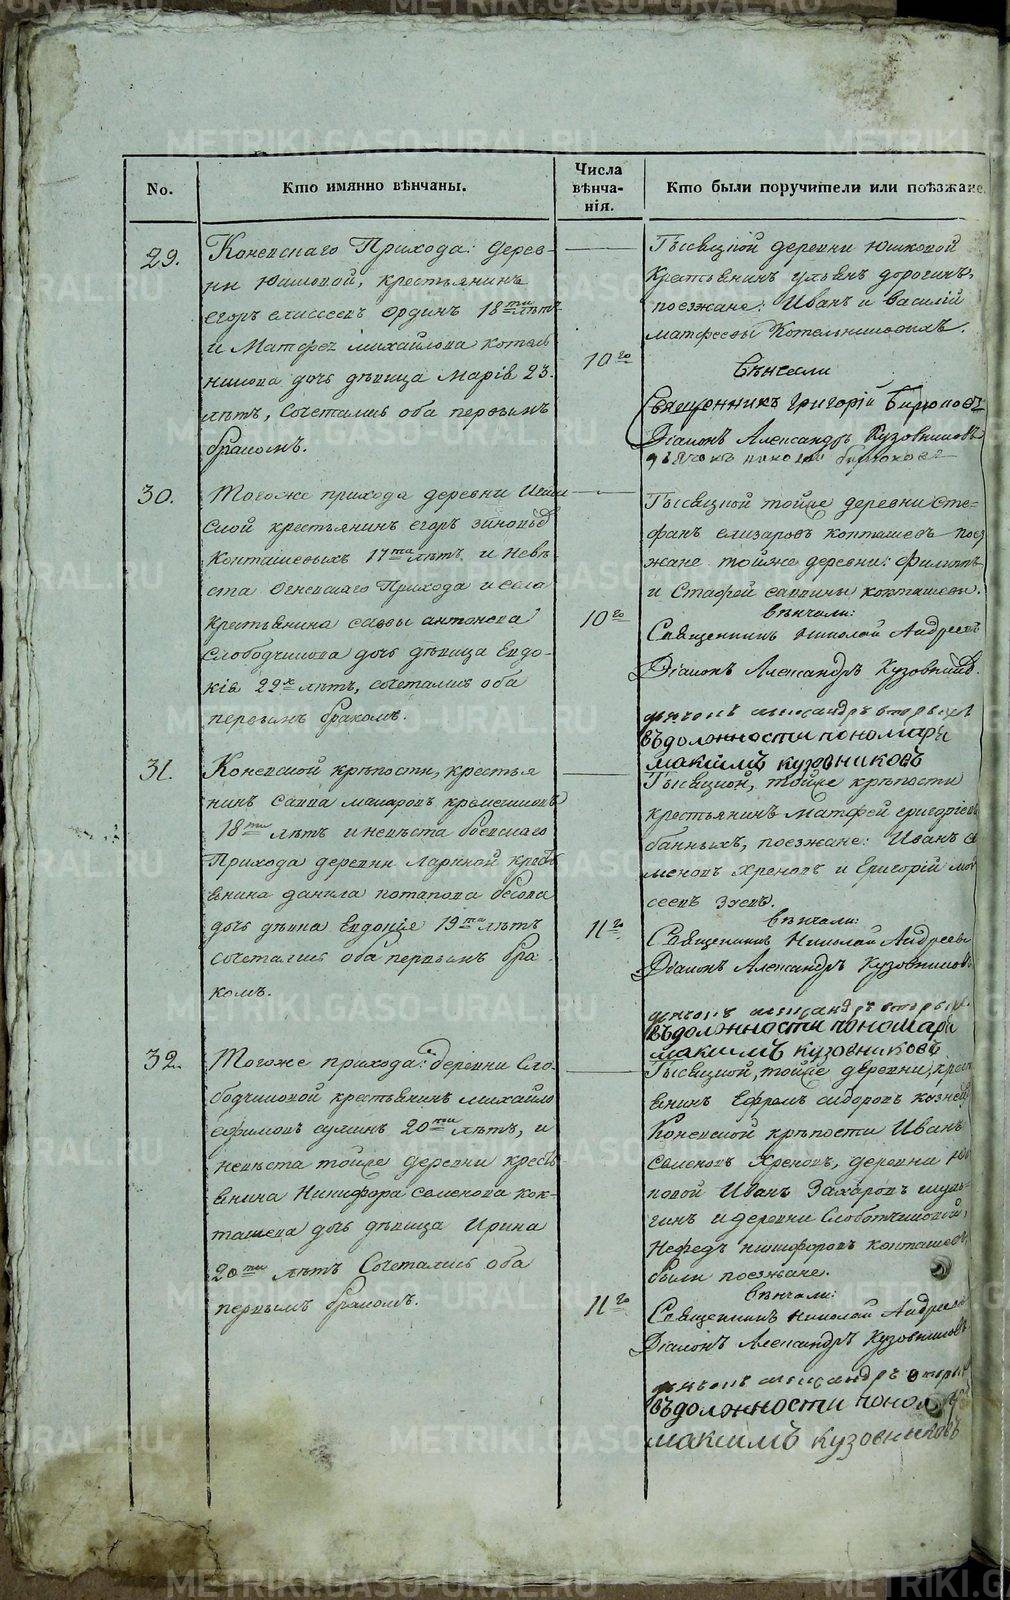 No.
Кто имянно вѣнчаны.
Числа
вѣнча-
нія.
Кто были поручители или поѣзжане.
29.
Коневскаго Прихода: дерев-
ни Юшковой, крестьянинъ
егоръ елисеевъ 18ти лѣтъ
и Матфея михайлова котель
никова дочь дѣвица Марія 23.
лѣтъ, сочетались оба первымъ
бракомъ.
10го
Тысяцкой деревни Юшковой
крестьянинъ ульянъ
поезжане: Иванъ и василій
матфеевы Котельниковыхъ.
вѣнчали
Священникъ григорій
Діаконъ Александръ Кузовниковъ
30.
Тогоже прихода деревни
крестьянинъ егоръ
17ти лѣтъ, и невѣ
ста Огневскаго Прихода и села
крестьянина савы антонова
слободчикова дочь дѣвица Евдо-
кія 22х лѣтъ, сочетались оба
первымъ бракомъ.
10го
Тысяцкой тойже деревни Сте-
фанъ елизаровъ кокташевъ поез
жане тойже деревни: Филиппъ
и Стафей саввины кокташевы.
вѣнчали:
Священникъ Николай Андреевъ
Діаконъ Александръ Кузовников
дьячокъ александръ
въ должности пономаря
максимъ кузовниковъ
31.
Коневской крѣпости, крестья
нинъ савва макаровъ
18ти лѣтъ и невѣста боевскаго
Прихода деревни Лариной крест
ьянина данила потапова бесова
дочь дѣвица Евдокія 19ти лѣтъ
сочетались оба первымъ бра
комъ.
11го
Тысяцкой, тойже крѣпости
крестьянинъ матфей григорьевъ
банныхъ, поезжане: Иванъ се
меновъ Хреновъ и Григорій мои
сеевъ зуевъ.
вѣнчали:
Священникъ Николай Андреевъ
Діаконъ Александръ Кузовниковъ
дьячокъ александръ
въ должности пономаря
максимъ кузовниковъ
32.
Тогоже прихода: деревни Сло-
бодчиковой крестьянинъ михайло
ефимовъ сулинъ 20ти лѣтъ, и
невѣста тойже деревни крест
ьянина Никифора семенова кок-
ташева дочь дѣвица Ирина
20ти лѣтъ Сочетались оба
первымъ бракомъ.
11го
Тысяцкой, тойже деревни, крест
ьянинъ Ефремъ сидоровъ
Коневской крѣпости Иванъ
семеновъ Хреновъ, деревни
Иванъ Захаровъ
и деревни Слободчиковой,
Нефедъ никифоровъ кокташевъ,
были поезжане.
вѣнчали:
Священникъ Николай Андреевъ
Діаконъ Александръ Кузовниковъ
дьячокъ александръ
въ должности понома
максимъ кузовниковъ
METRIKI.GASO-URAL.RU